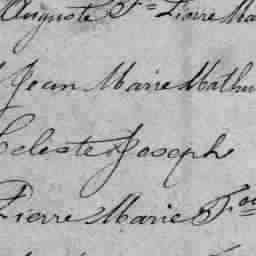 Auguste Fs Pierre Ma
Jean Marie Mathu
Celeste Joseph
Pierre Marie Fois